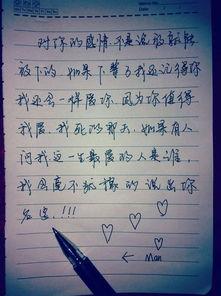 对你的感情不是说放就能
放下的,如果下辈子我还记得你
我还会一样爱你,因为你值得
我爱,我死的那天,如果有人
问我这一生最爱的人是谁,
我会毫不犹豫的说出你
名字.!!!
← Man